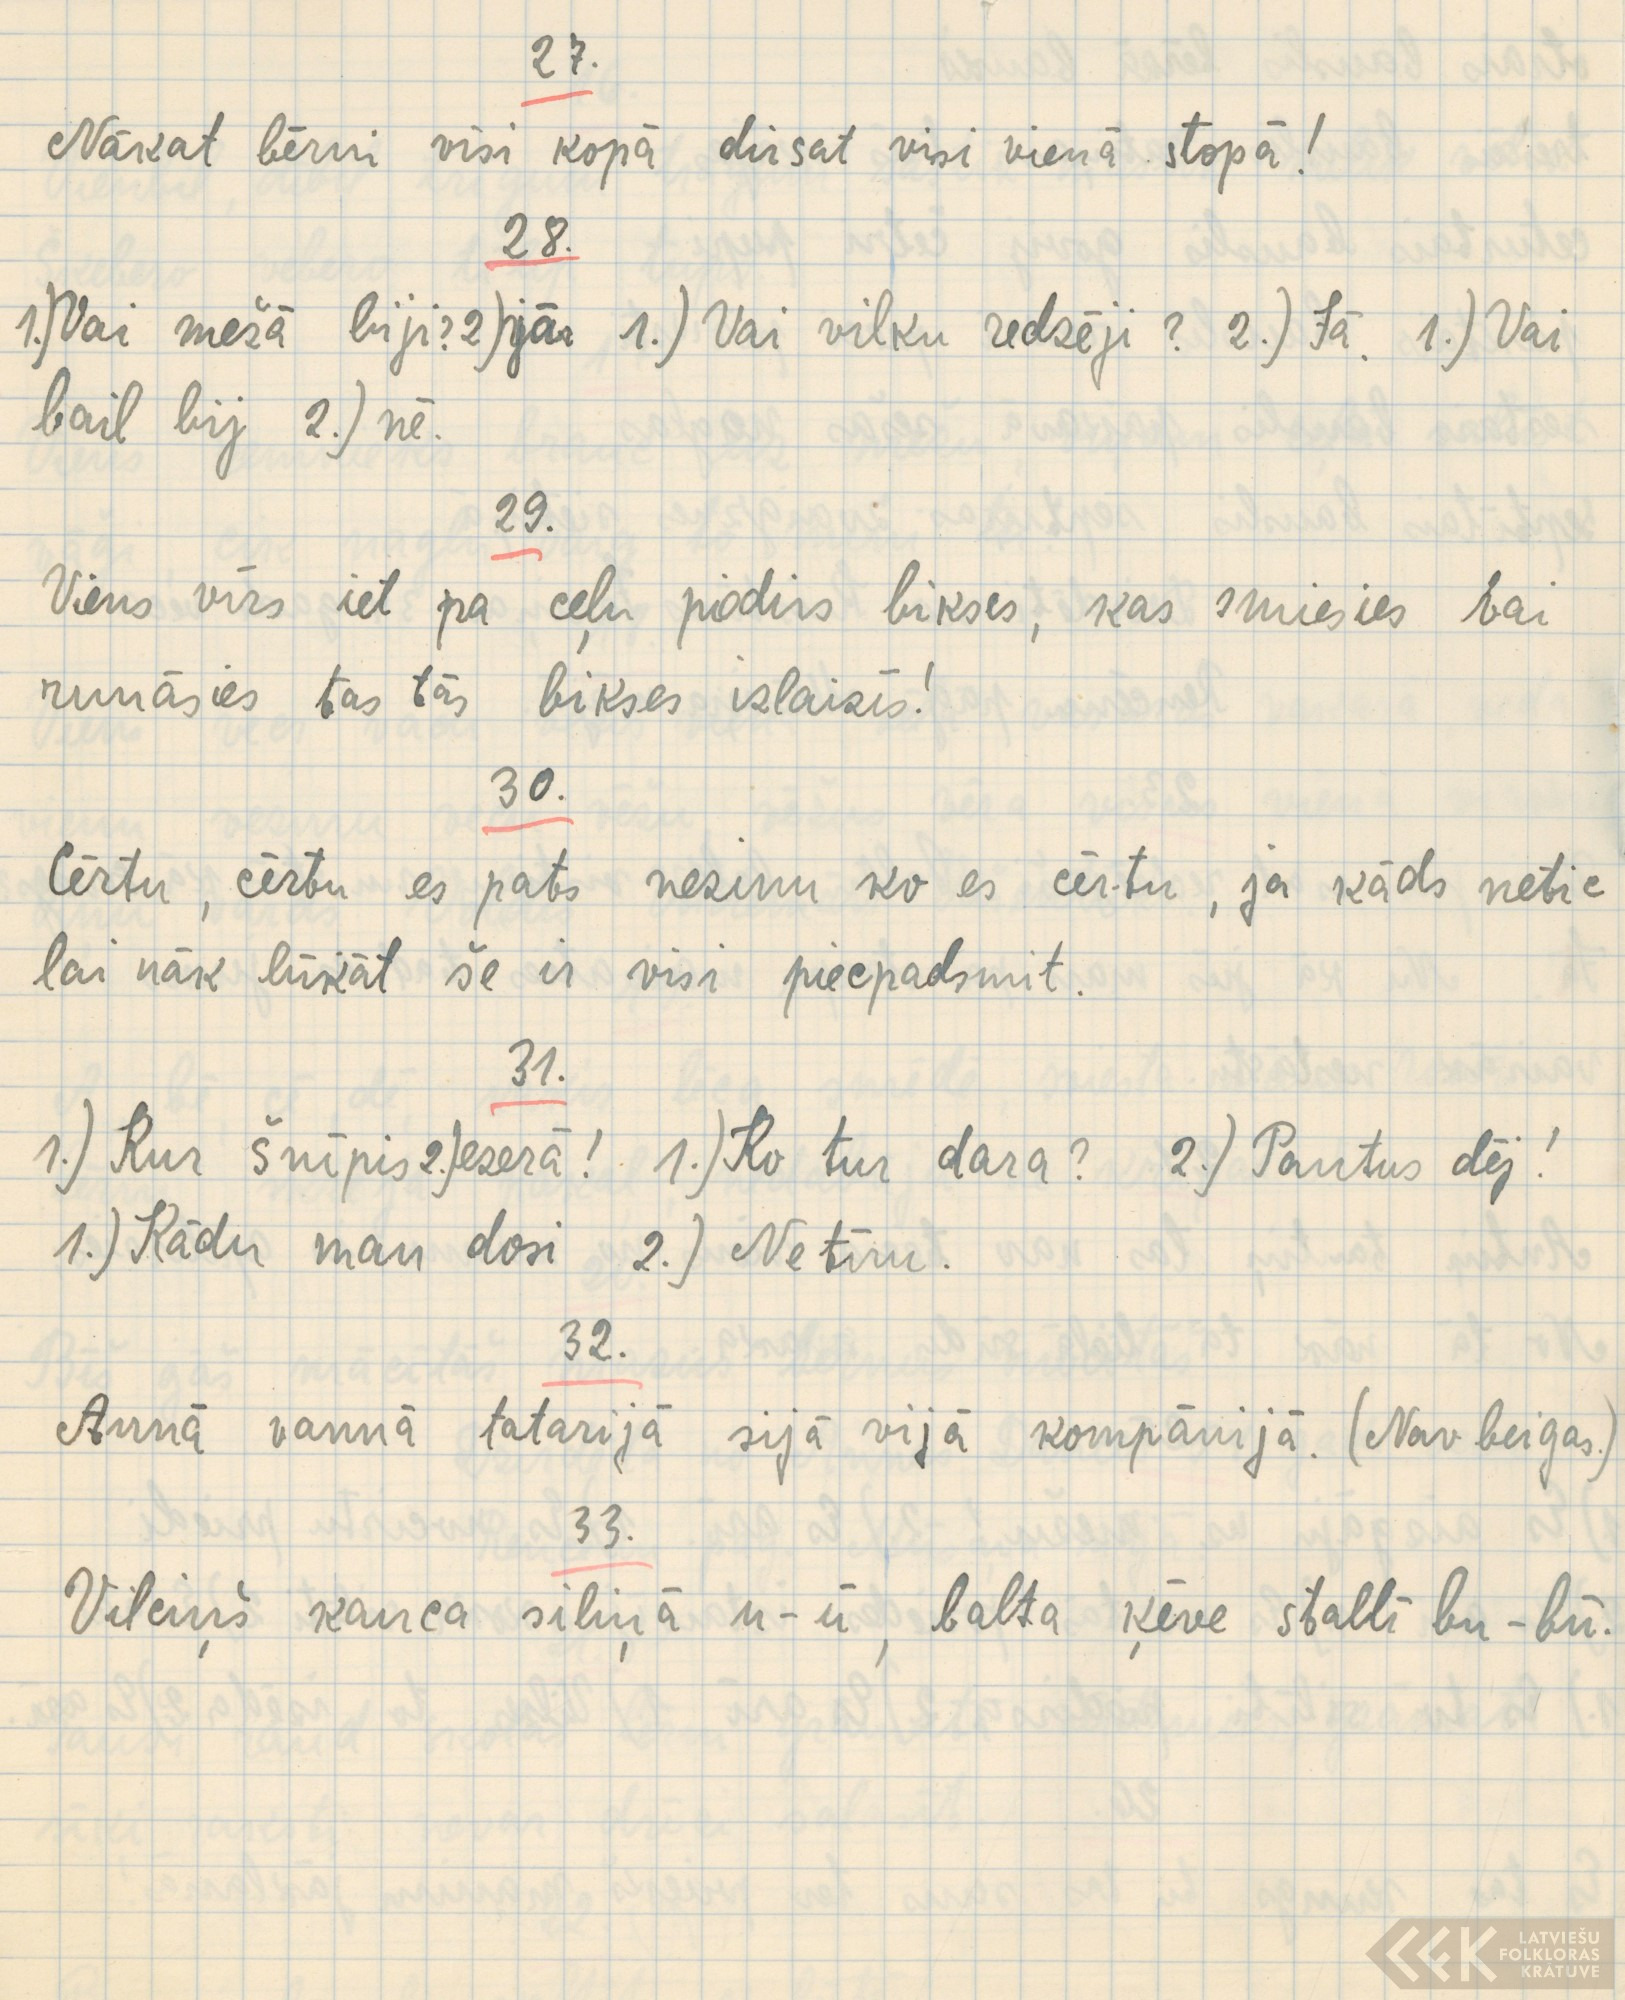 27.
Nākat bērni visi kopā dirsat visi vienā stopā!
28.
1.) Vai mežā biji? 2.) jā 1.) Vai vilku redzēji? 2.) Jā. 1.) Vai
bail bij 2.) nē.
29.
Viens vīrs iet pa ceļu piedirs bikses, kas smiesies vai
runāsies tas tās bikses izlaizīs!
30.
Cērtu, cērtu es pats nezinu ko es cērtu, ja kāds netic
lai nāk lūkāt še ir visi piecpadsmit.
31.
1.) Kur šnīpis 2.) ezerā! 1.) Ko tur dara? 2.) Pautus dēj!
1.) Kādu man dosi 2.) Netīru.
32.
Annā vannā tatarijā sijā vijā kompānijā. (Nav beigas.)
33.
Vilciņš kauca siliņā u-ū, balta ķēve stallī bu-bū.
LATVIEŠU
FOLKLORAS
KRĀTUVE